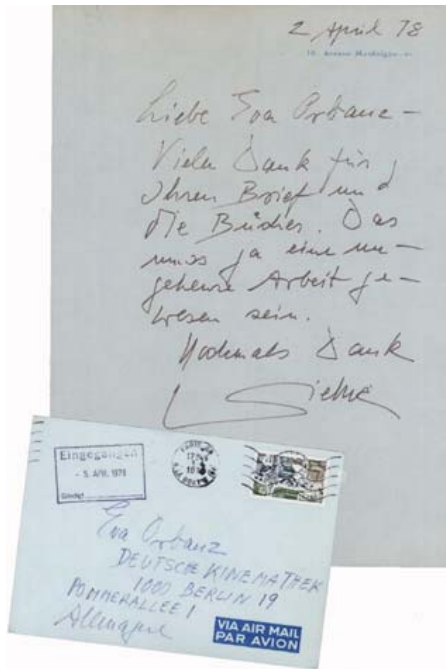 2 April 78
Liebe Eva Orbanz –
Vielen Dank für
Ihren Brief und
die Bücher. Das
muss ja eine un-
geheure Arbeit ge-
wesen sein.
Nochmals Dank
Eingegangen
- 5. APR. 1978
Erledigt
PARIS
Eva Orbanz
DEUTSCHE KINEMATHEK
1000 BERLIN 19
POMMERALLEE 1
Allemagne
VIA AIR MAIL
PAR AVION